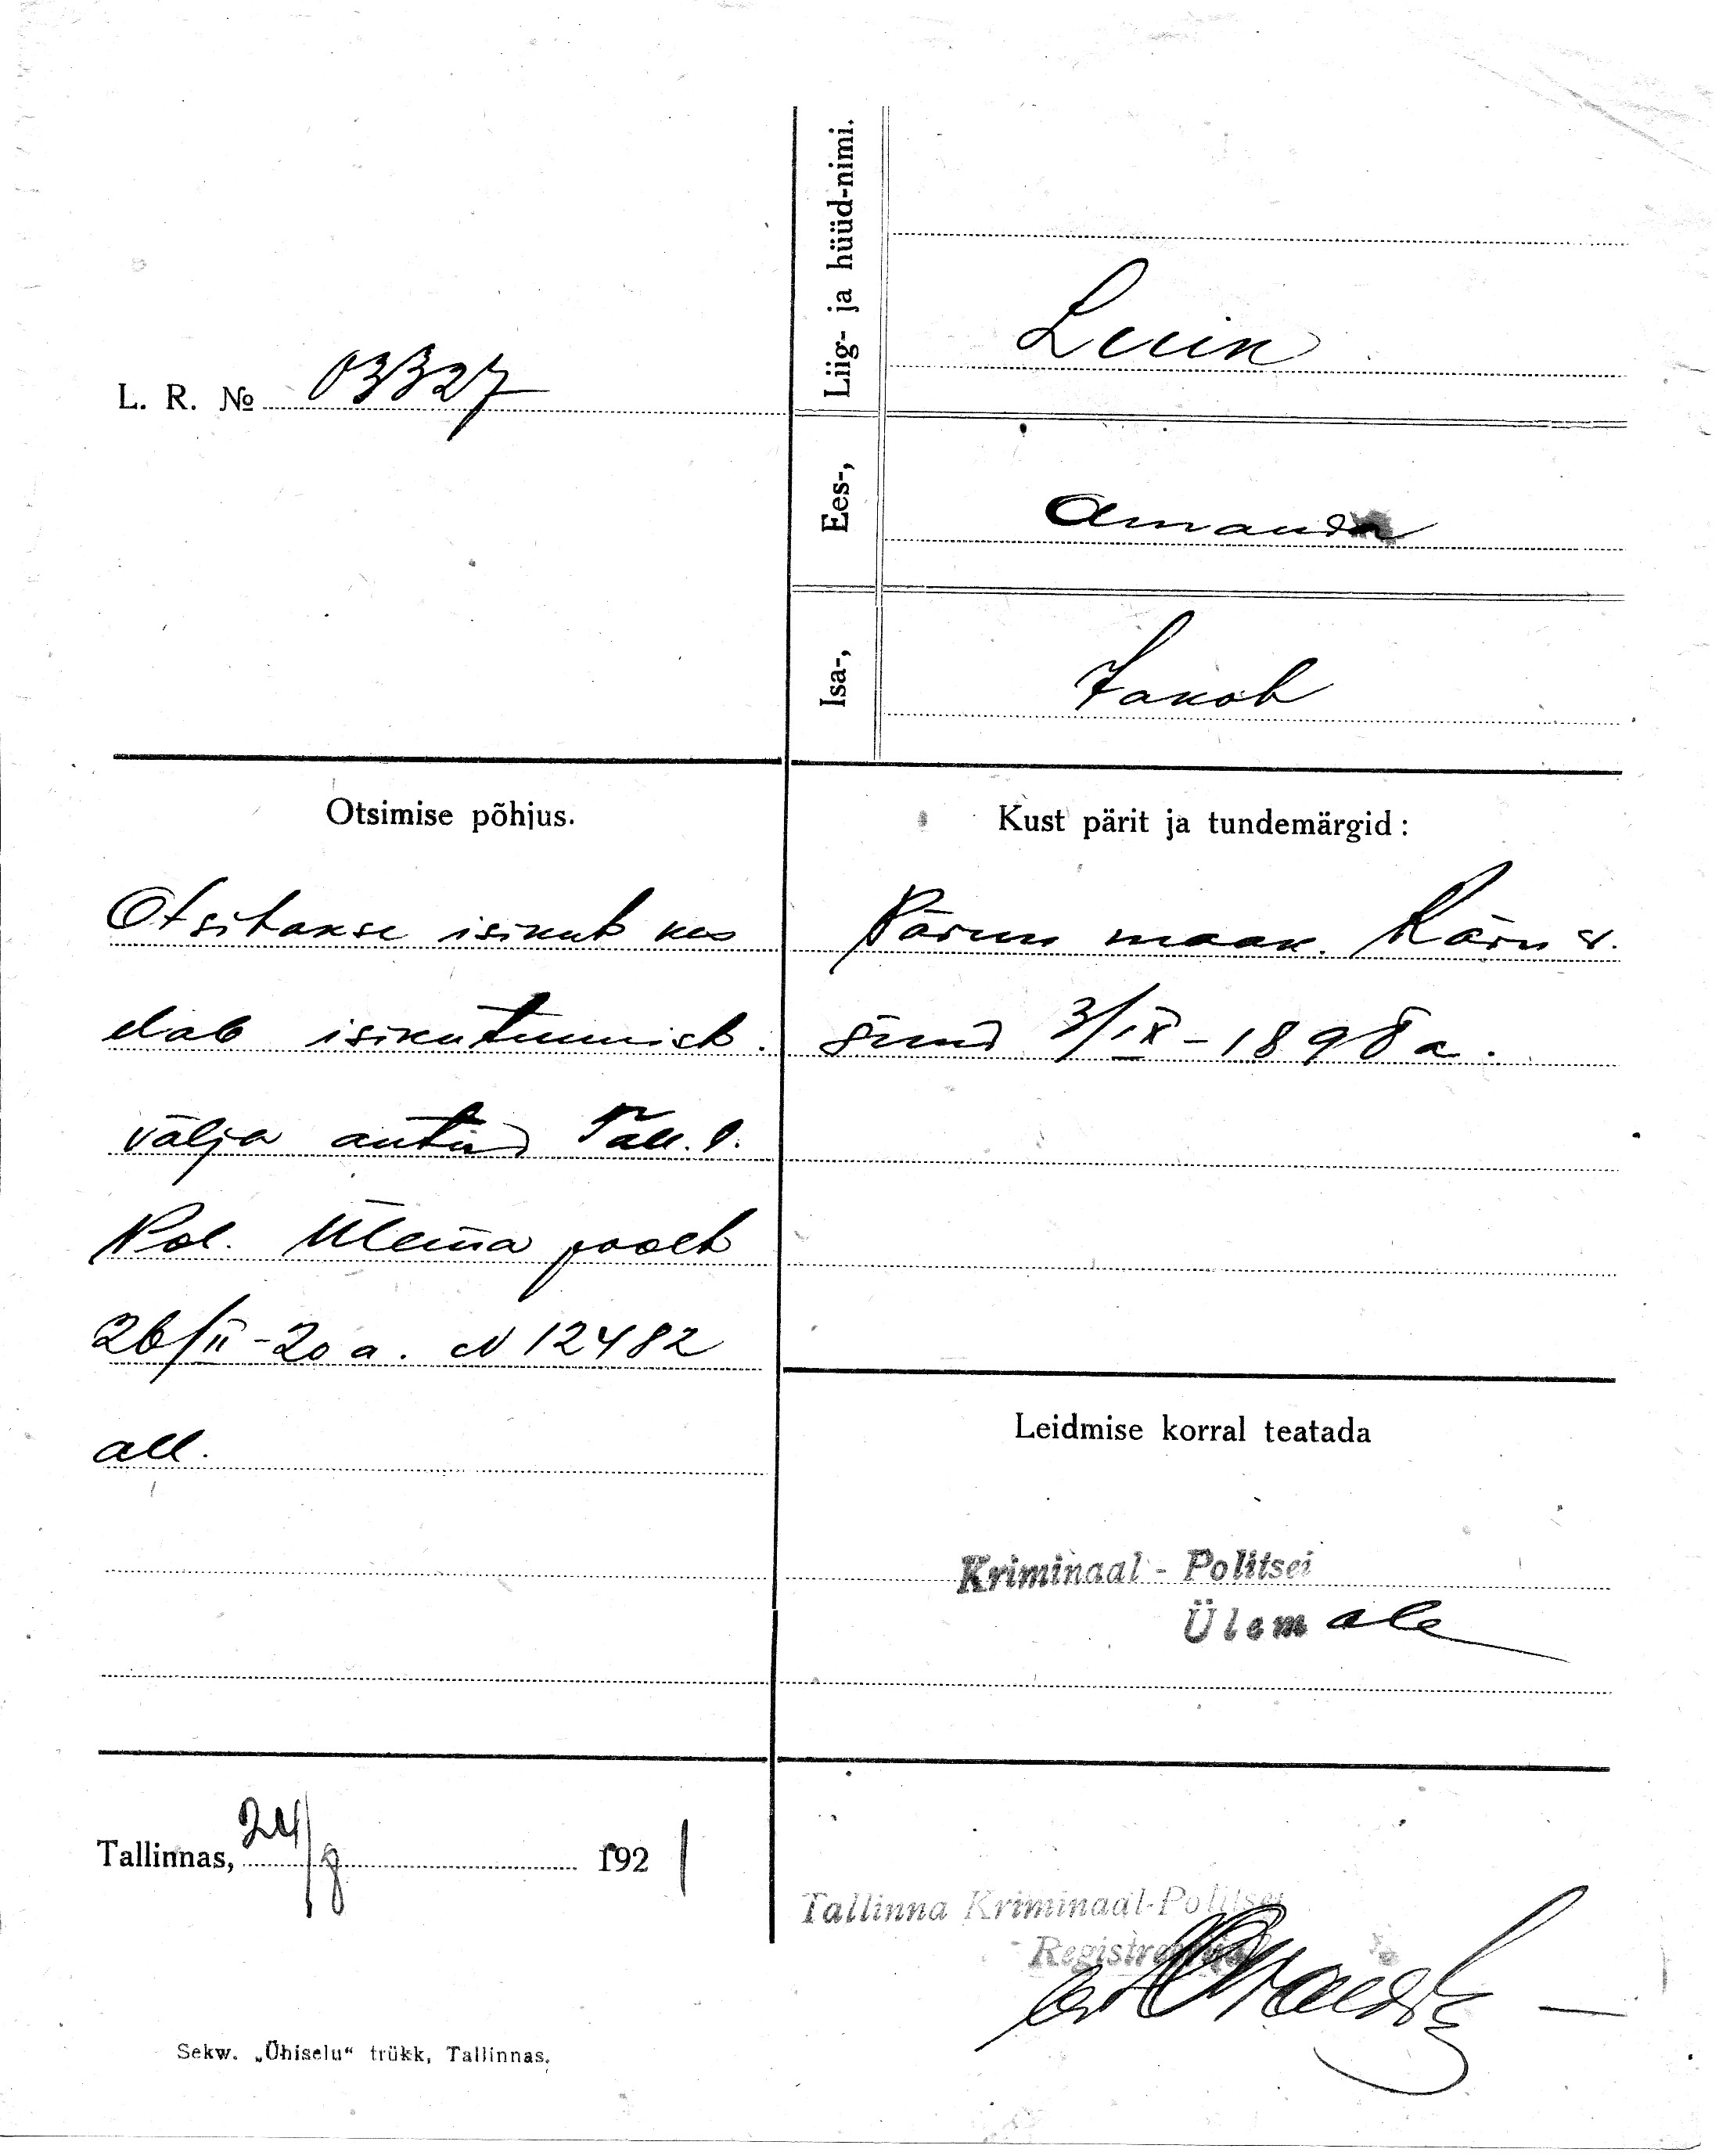 L. R. № 03327
Liig- ja hüüd-nimi.
Luin
Ees-,
Amanda
Isa-,
Jakob
Otsimise põhjus.
Otsitakse isikut kes
elab isikutunnist.
välja antud Tall. l.
Pol. Ülema poolt
26/II-20 a. N 12482
all.
Kust pärit ja tundemärgid:
Pärnu maak. Käru v.
sünd 3/IX-1898 a.
Leidmise korral teatada
Kriminaal-Politsei
Ülemale
Tallinnas, 24/8 1921
Tallinna Kriminaal-Politsei
Sekw. „Ühiselu“ trükk, Tallinnas.